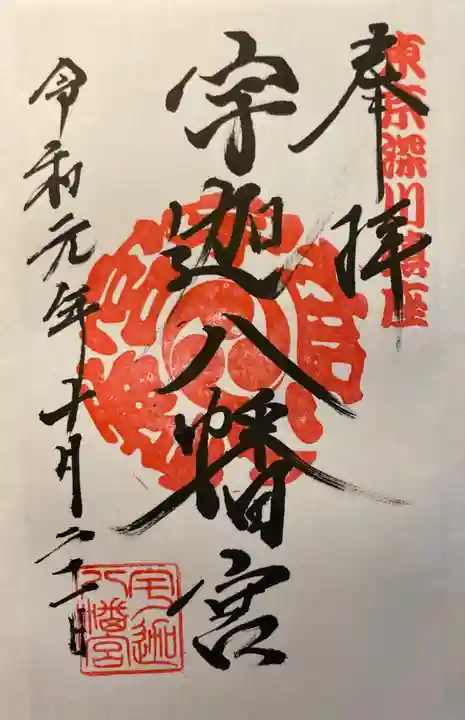 東京深川鎮座
奉拝
宇迦八幡宮
令和元年十月二十一日
宇迦
八幡宮